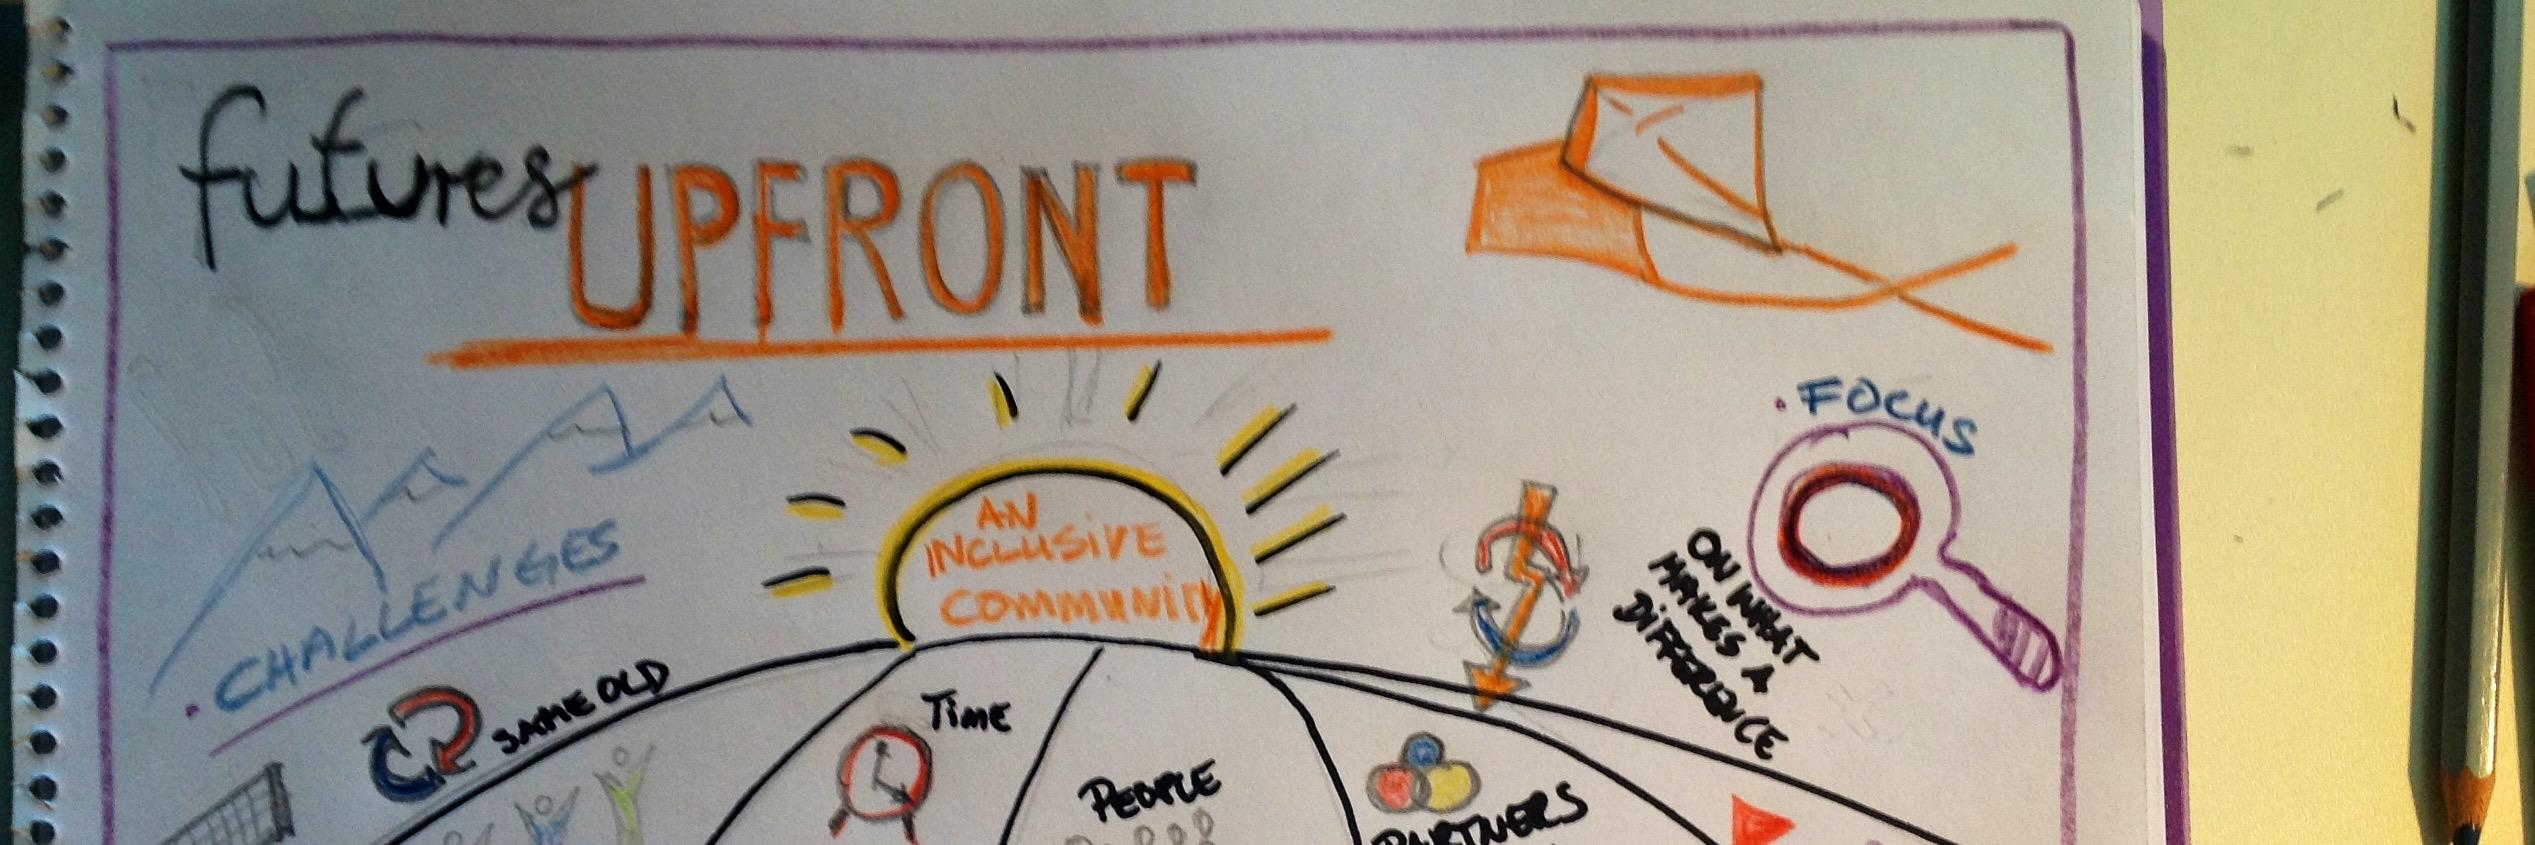 futures UPFRONT
• FOCUS
AN
INCLUSIVE
COMMUNITY
ON WHAT
MAKES A
DIFFERENCE
• CHALLENGES
SAME OLD
TIME
PEOPLE
PARTNERS